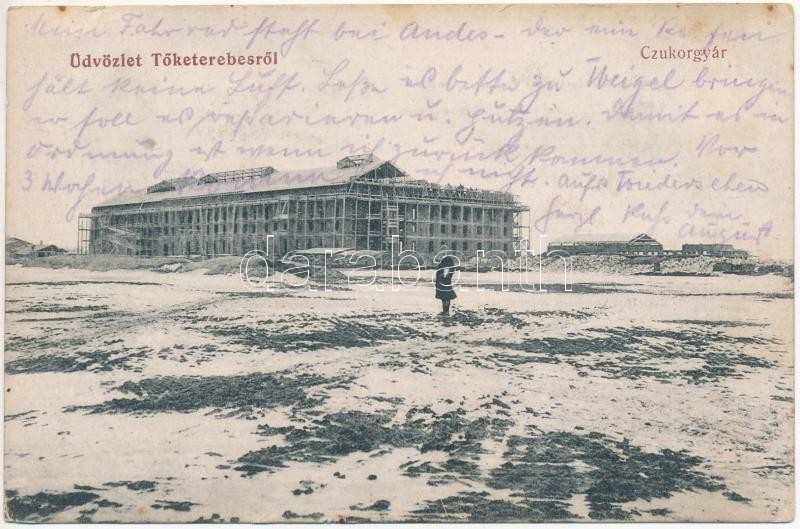 Mein Fahrrad steht bei Andes - der ein
Üdvözlet Tőketerebesről
Czukorgyár
hält keine Luft. Lasse es bitte zu Weigel bringen
er soll es reparieren u. putzen. damit es in
Ordnung ist wenn ich zurück kommen. Vor
3 Wochen ich nicht. aufs Wiedersehen
herzl Kuss dein
August
darabanth